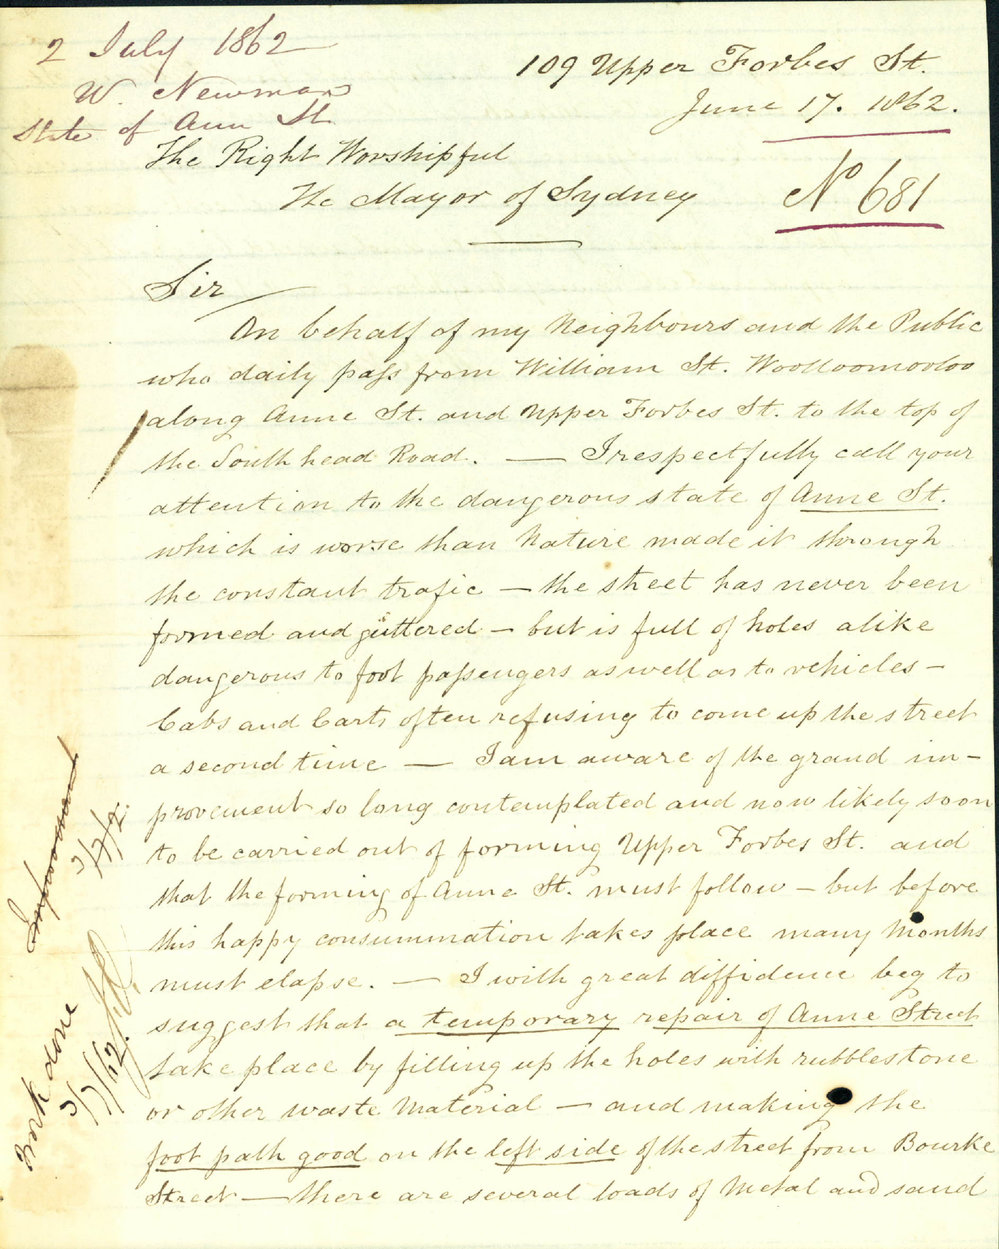 2 July 1862
W. Newman
State of Ann St
109 Upper Forbes St.
June 17. 1862.
The Right Worshipful
The Mayor of Sydney
No 681
Sir
On behalf of my Neighbours and the Public
who daily pass from William St. Woolloomooloo
along Anne St. and Upper Forbes St. to the top of
the South head Road. — I respectfully call your
attention to the dangerous state of Anne St.
which is worse than Nature made it through
the constant trafic — the street has never been
formed and guttered — but is full of holes alike
dangerous to foot passengers as well as to vehicles —
Cabs and Carts often refusing to come up the street
a second time — I am aware of the grand im-
provement so long contemplated and now likely soon
to be carried out of forming Upper Forbes St. and
that the forming of Anne St. must follow — but before
this happy consummation takes place many Months
must elapse. — I with great diffidence beg to
suggest that a temporary repair of Anne Street
take place by filling up the holes with rubblestone
or other waste Material — and making the
foot path good on the left side of the street from Bourke
Street — there are several loads of Metal and sand
Work done